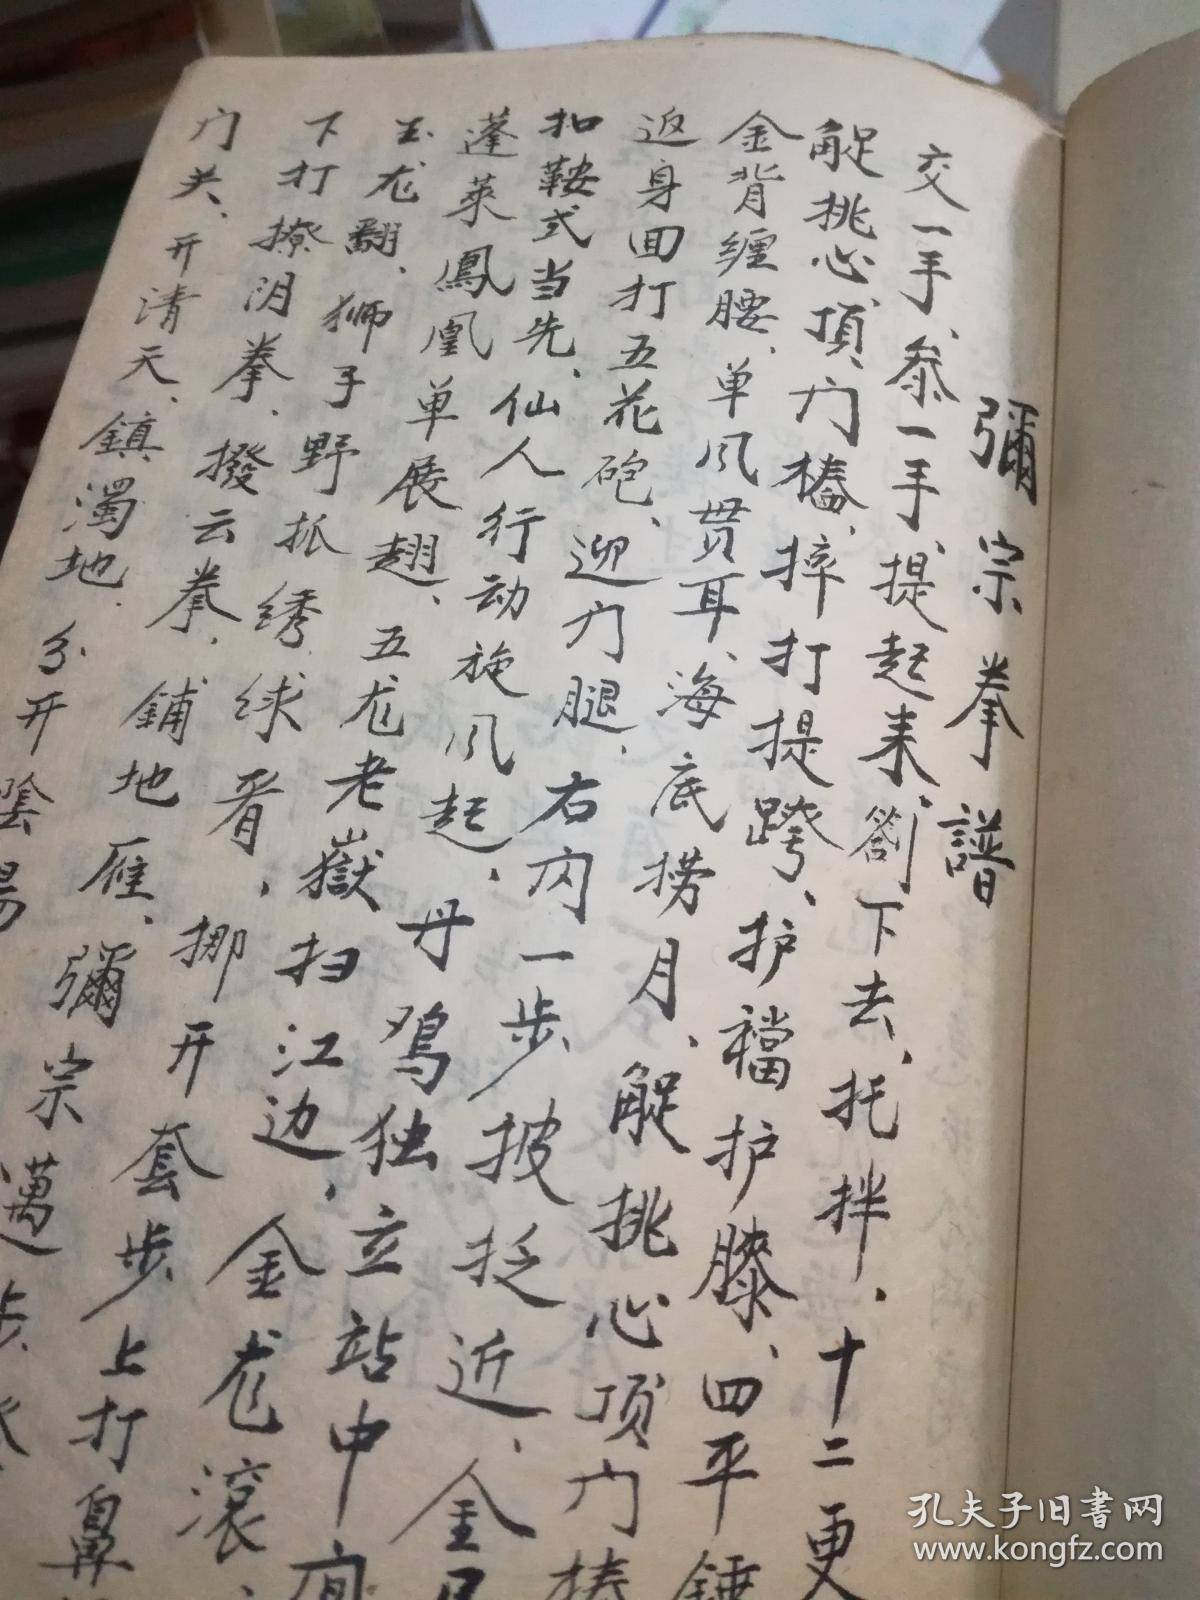 彌宗拳譜
交一手、叅一手、提起来、劄下去、托拌、十二更
挑心頂门樁、捽打提跨、护襠护膝、四平錘
金背缠腰、单风贯耳、海底捞月、挑心顶门樁
返身回打五花砲、迎门腿、右闪一步、披近、金
扣鞍式当先、仙人行动施风起、丹鸡独立站中间
蓬莱鳳凰单展翅、五龙老嶽扫江边、金龙滚、
玉龙翻、狮子野抓绣球看、挪开套步上打鼻
下打撩阴拳、撥云拳、鋪地雁、彌宗邁步
门关、开清天、鎮濁地、分开陰陽
孔夫子旧书网
www.kongfz.com